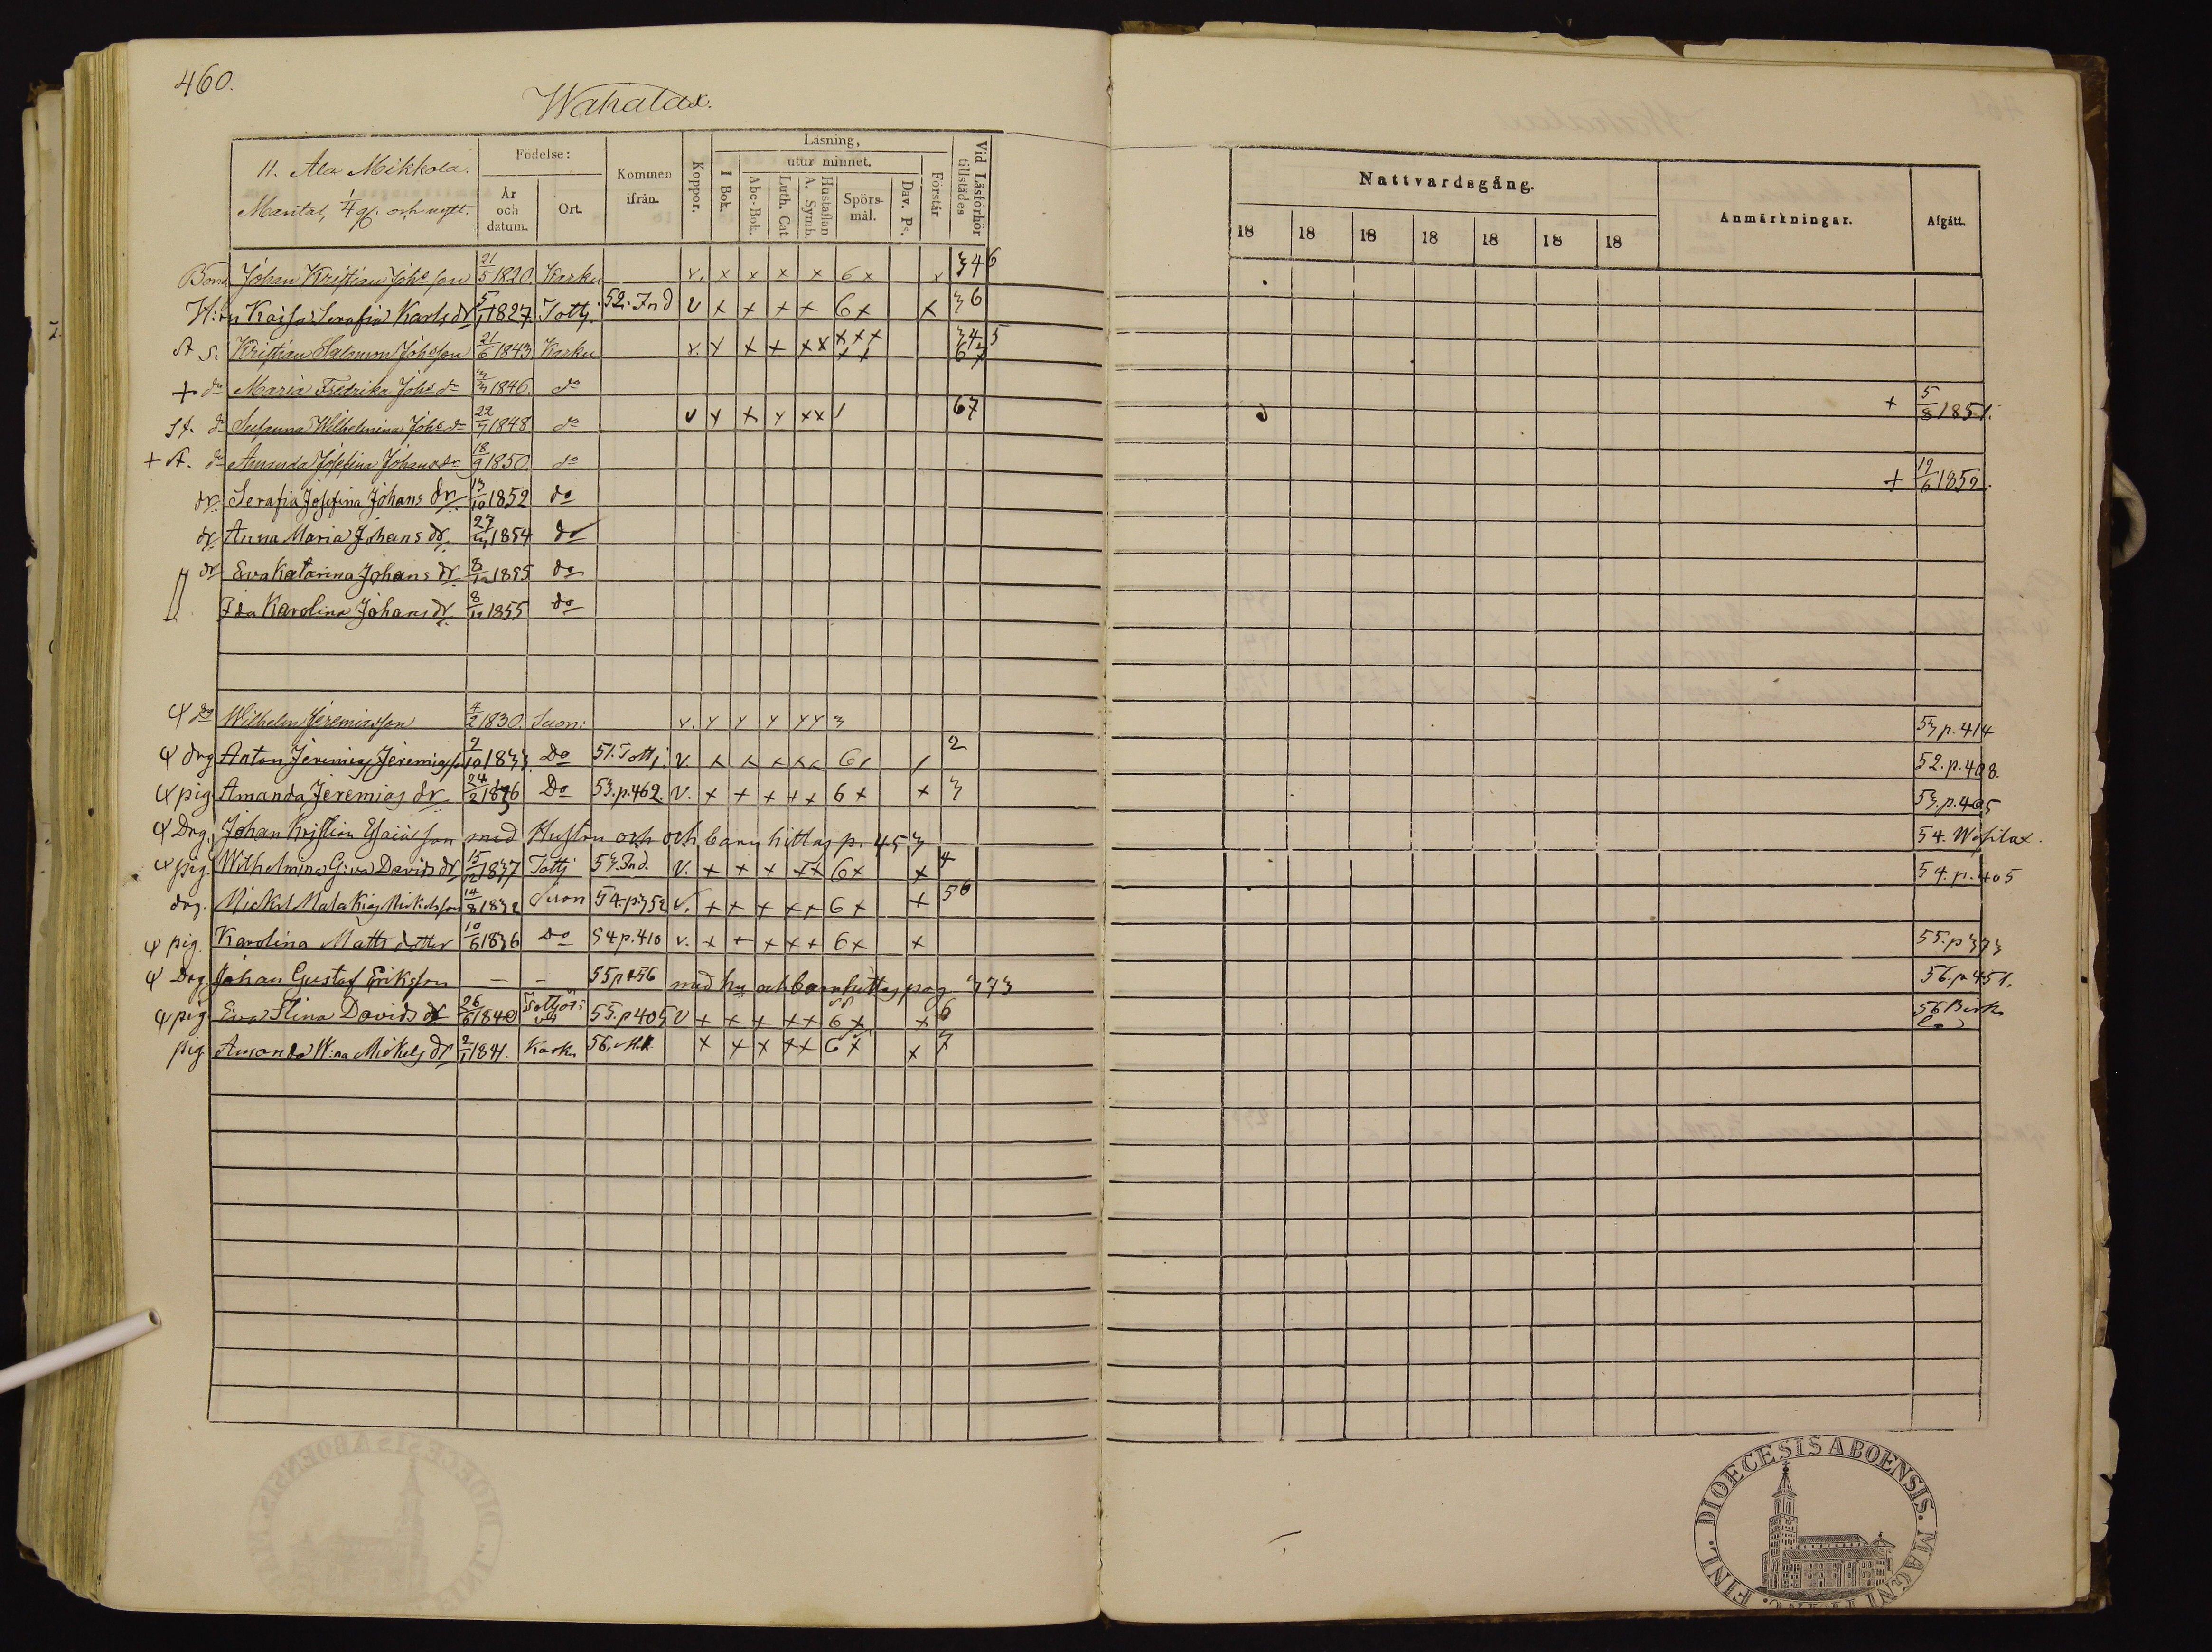 460.
Wahalax.
11. Ala Mikkola.
Mantal, 1/4 och nytt.
Födelse:
År och datum.
Ort.
Kommen ifrån.
Koppor.
Läsning,
utur minnet.
I Bok.
Abc-Bok.
Luth. Cat
Hustaflan A. Symb.
Spörsmål.
Dav. Ps.
Förstår
Vid Läsförhör tillstädes
Nattvardsgång.
18 18 18 18 18 18 18
Anmärkningar.
Afgått.
Bond Johan Kristian Johsson 21/5 1820. Karku v. x x x x 6 x x 346
H:u Kaisa Serafia Karls dr 5/1 1827 Tottj. 52. Ind v x x x x 6 x x 36
S. Kristian Salomon Johsson 21/6 1843 Karku v. x x x x x x x x x x 345 67
+ do Maria Fredrika Johs dr 3/3 1846. do + 5/8 1851.
do Susanna Wilhelmina Johs dr 22/7 1848 do v x x x x x 1 67
+ do Amanda Josefina Johans dr 18/9 1850. do + 12/6 1852.
dr. Serafia Josefina Johans dr 13/10 1852 do
dr Anna Maria Johans dr. 27/4 1854 do
dr Eva Katarina Johans dr 8/12 1855 do
Ida Karolina Johans dr. 8/12 1855 do
do Wilhelm Jeremiasson 4/2 1830. Suon: v. x x x x x 3 53 p. 414
drg Anton Jeremias Jeremiasson 2/10 1833. Do 51. Tottj. v. x x x x x 6 1 1 2 52. p. 408.
pig. Amanda Jeremias dr 24/2 1836 Do 53. p. 462. v. x x x x x 6 x x 3 53. p. 405
Drg. Johan Kristian Esaiasson med Hustru och och barn hittas p. 453 54. Wesilax.
pig. Wilhelmina G:va Davids dr 15/12 1837 Tottj 53. Ind. v. x x x x x 6 x x 4 54. p. 405
drg. Mickel Malakias Mickelsson 14/8 1832 Suon 54. p. 352 v. x x x x x 6 x x 56
pig. Karolina Matts dotter 10/6 1836 Do 54 p. 410 v. x x x x x 6 x x 55. p 373
Drg Johan Gustaf Eriksson — — 55 p 456 med hu och barn hittas pag 373 56. p 451.
pig. Eva Stina Davids dr 26/6 1840 55. p 405 v x x x x x 6 x x 6 56 Birk
pig. Amanda W:na Mickels dr 2/1 1841. Kark. 56. x x x x x 6 x x 7
DIOECESIS ABOENSIS. MAGNI FINL.